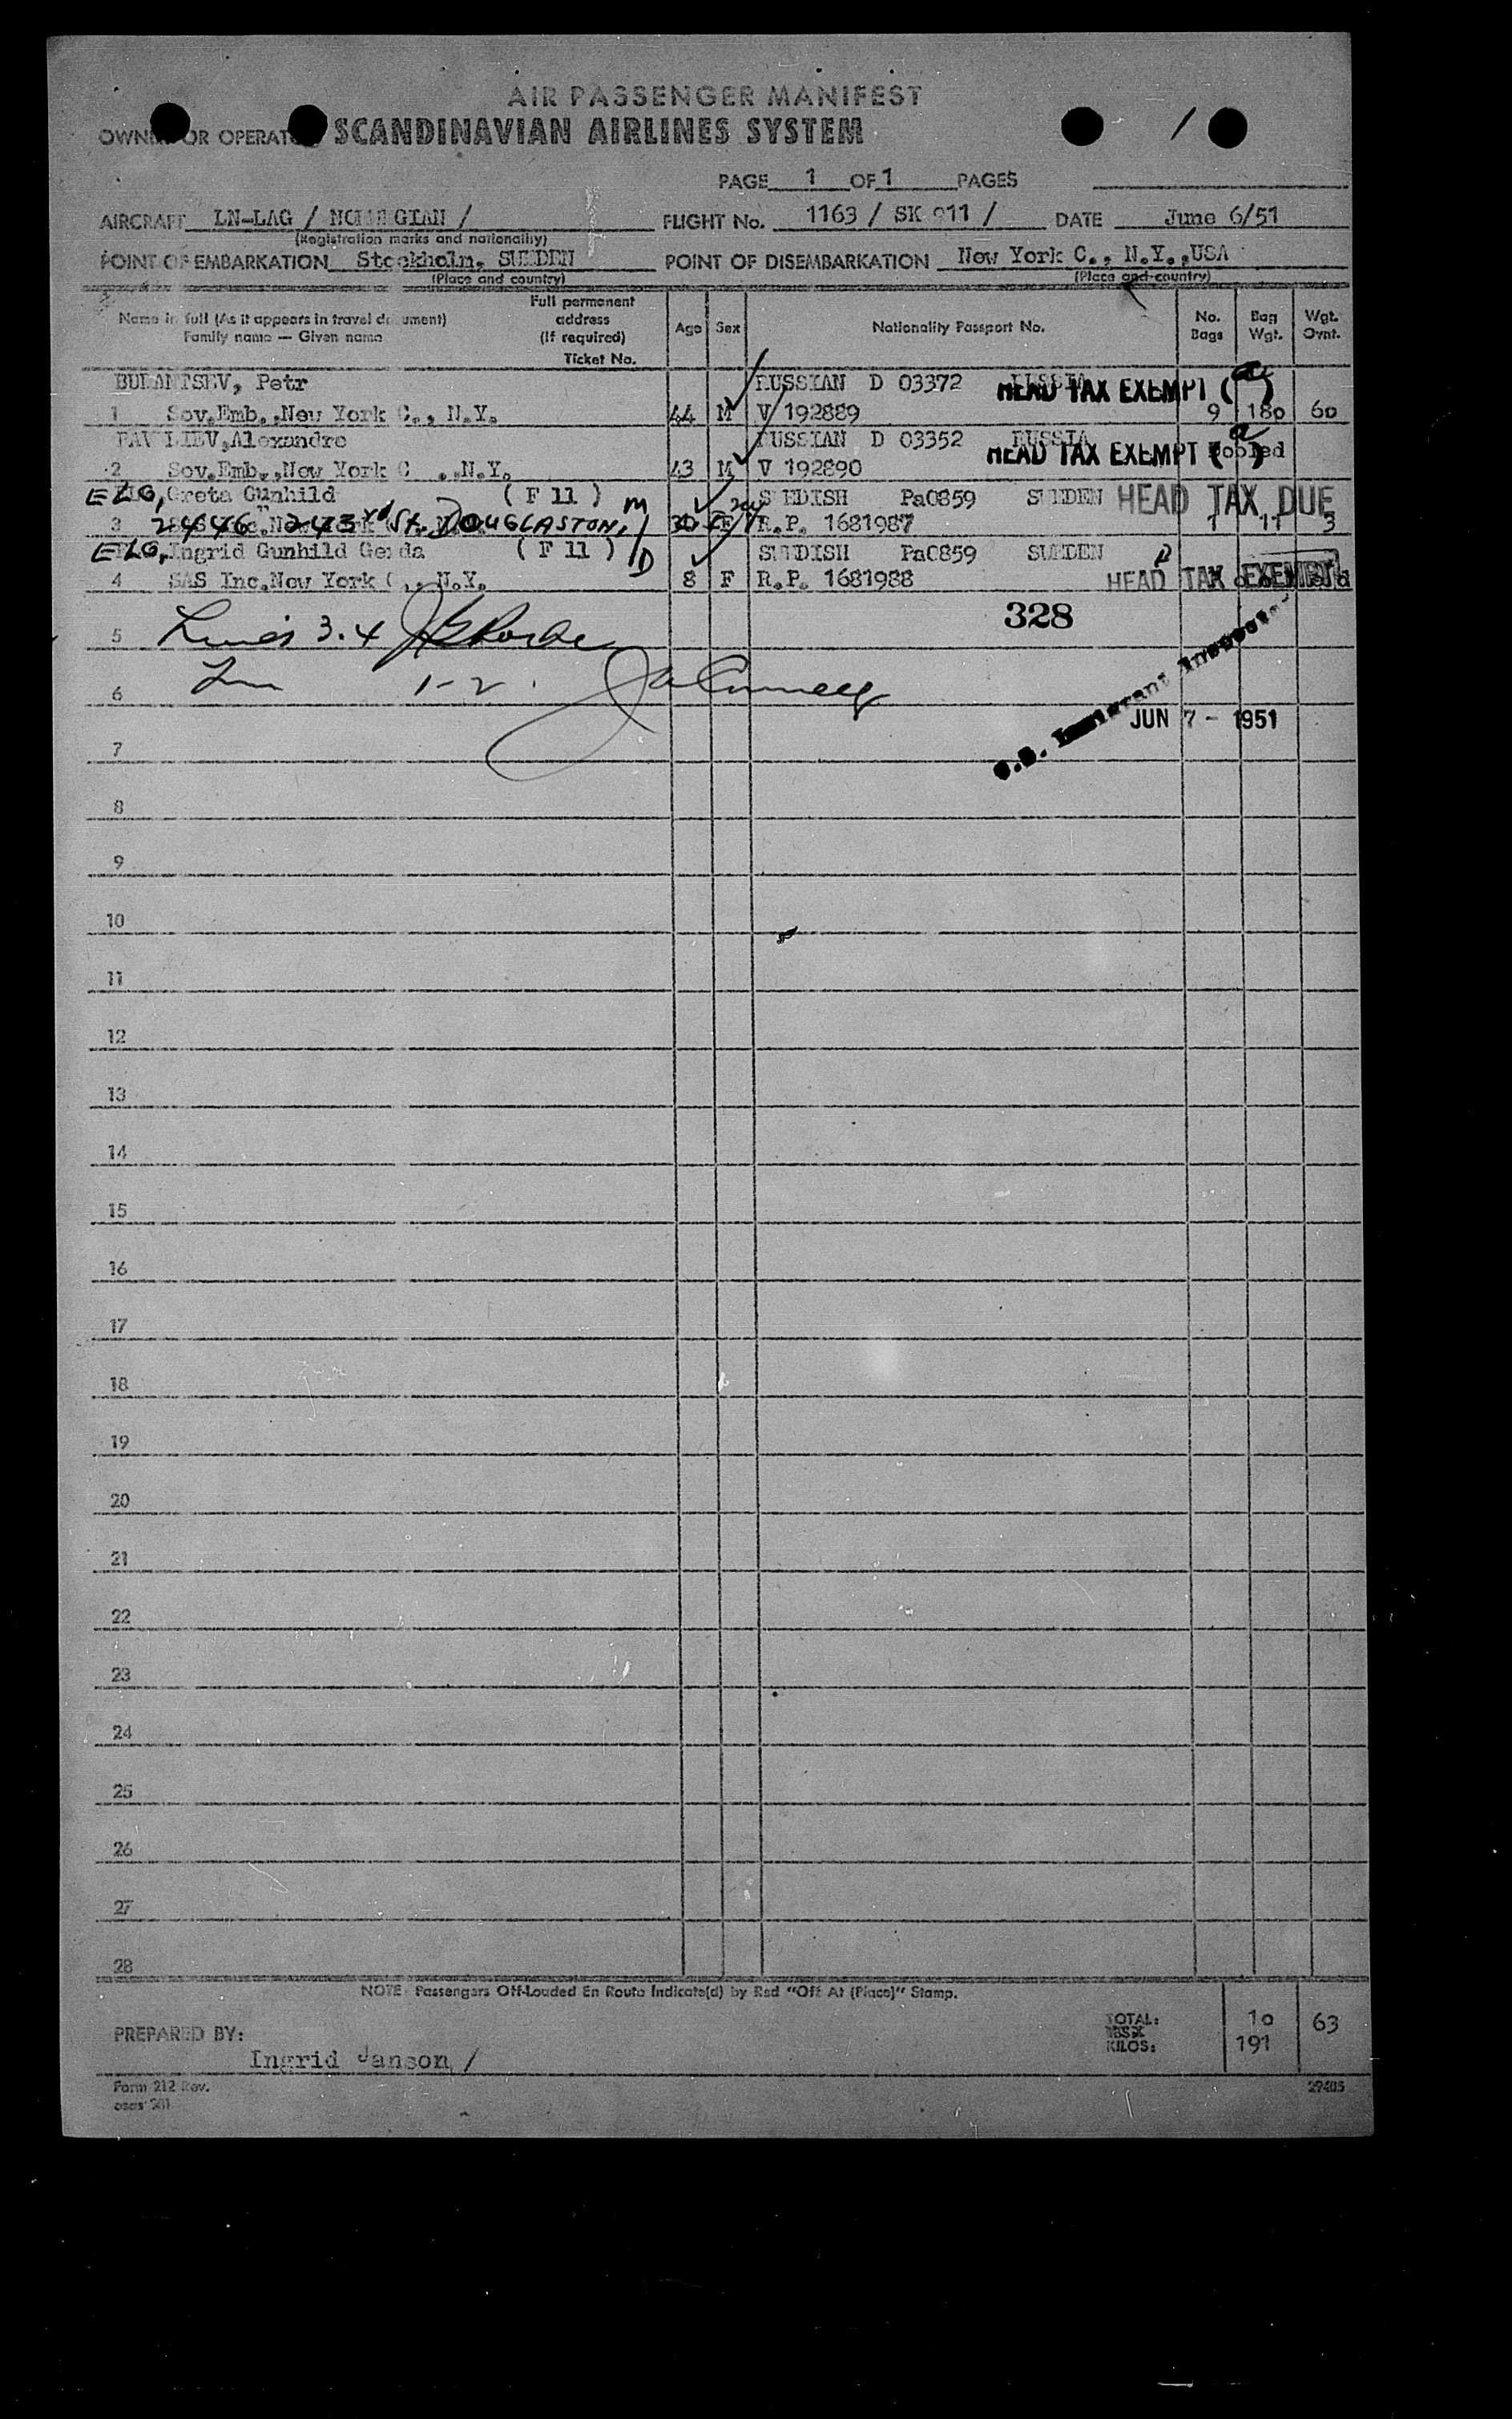 AIR PASSENGER MANIFEST
OWNER OR OPERATOR SCANDINAVIAN AIRLINES SYSTEM
PAGE 1 OF 1 PAGES
AIRCRAFT LN-LAG / NORWEGIAN / FLIGHT No. 1163 / SK 911 / DATE June 6/51
(Registration marks and nationality)
POINT OF EMBARKATION Stockholm, SWEDEN POINT OF DISEMBARKATION New York C., N.Y.,USA
(Place and country) (Place and country)
Name in full (As it appears in travel document) Family name — Given name Full permanent address (If required) Ticket No. Age Sex Nationality Passport No. No. Bags Bag Wgt. Wgt. Ovnt.
Petr RUSSIAN D 03372 RUSSIA HEAD TAX EXEMPT (a)
1 Sov.Emb.,New York C., N.Y. 44 M V 192889 9 180 60
Alexandre RUSSIAN D 03352 RUSSIA HEAD TAX EXEMPT (a) Pooled
2 Sov.Emb.,New York C., N.Y. 43 M V 192890
ELG, Greta Gunhild ( F 11 ) SWEDISH Pa0859 SWEDEN HEAD TAX DUE
3 2446 243rd St. DOUGLASTON, F R.P. 1681987 1 11 3
ELG, Ingrid Gunhild Gerda ( F 11 ) SWEDISH Pa0859 SWEDEN
4 SAS Inc.New York C., N.Y. 8 F R.P. 1681988 HEAD TAX EXEMPT
328
5 Lines 3.4
6 1-2.
U.S. Immigrant Inspector
JUN 7 - 1951
7
8
9
10
11
12
13
14
15
16
17
18
19
20
21
22
23
24
25
26
27
28
NOTE: Passengers Off-Loaded En Route Indicate(d) by Red "Off At (Place)" Stamp.
PREPARED BY: Ingrid Janson /
TOTAL: 10 63
KILOS: 191
Form 212 Rev.
29485